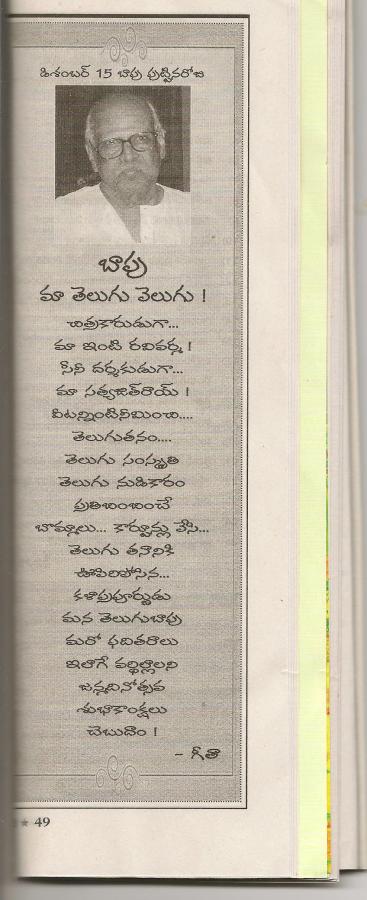 డిశంబర్ 15 బాపు పుట్టినరోజు
బాపు
మా తెలుగు వెలుగు !
చిత్రకారుడుగా...
మా ఇంటి రవివర్మ !
సినీ దర్శకుడుగా...
మా సత్యజిత్‌రాయ్ !
వీటన్నింటినీమించి....
తెలుగుతనం....
తెలుగు సంస్కృతి
తెలుగు నుడికారం
ప్రతిబింబించే
బొమ్మలు... కార్టూన్లు వేసి...
తెలుగు తనానికి
ఊపిరిపోసిన...
కళాప్రపూర్ణుడు
మన తెలుగుబాపు
మరో పదితరాలు
ఇలాగే వర్ధిల్లాలని
జన్మదినోత్సవ
శుభాకాంక్షలు
చెబుదాం !
- గీతా
★ 49